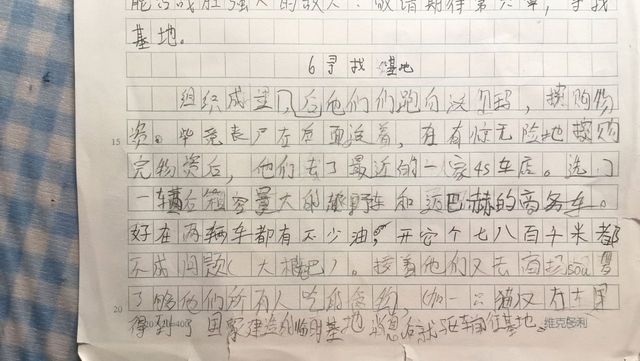 能否战胜强大的敌人?敬请期待第六章,寻找
基地。
6寻找基地
组织成立后他们们跑向沃尔玛,搜购物
资。毕竟丧尸在后面追着,在有惊无险地搜购
15
完物资后,他们去了最近的一家4S车店。选了
一辆后箱容量大的越野车和迈巴赫的商务车。
好在两辆车都有不少油,开它个七八百千米都
不成问题(大概吧)。接着他们又去商超sou
了够他们所有人吃的食物(加一只猫)又在车里
20
得到了国家建造的临时基地消息后就驱车前往基地。
维克多利